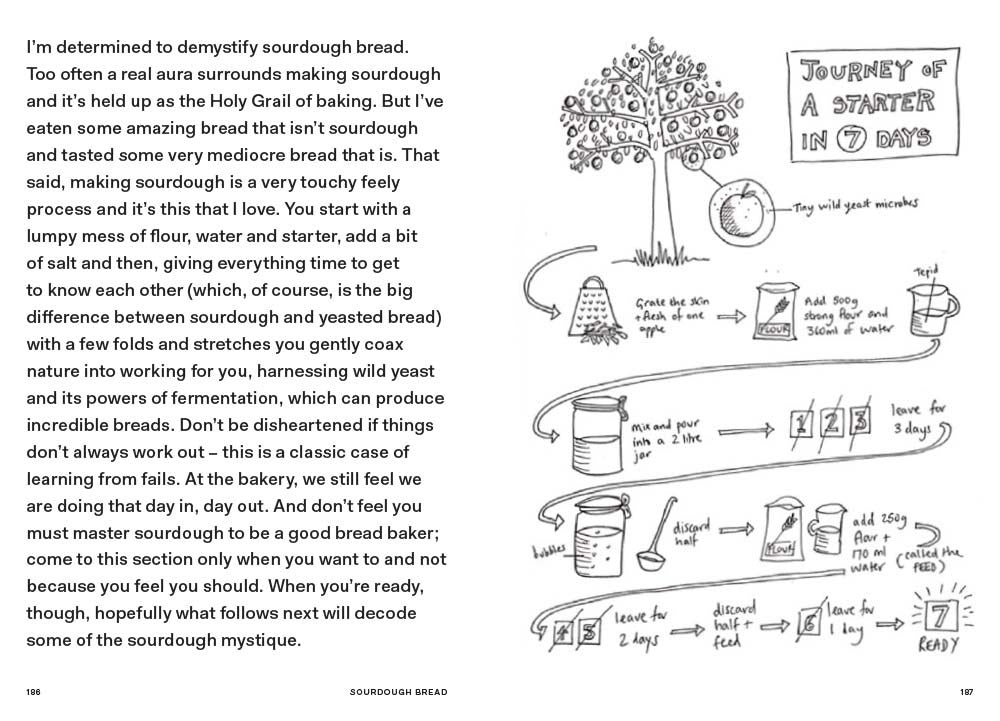 I'm determined to demystify sourdough bread.
Too often a real aura surrounds making sourdough
and it's held up as the Holy Grail of baking. But I've
eaten some amazing bread that isn't sourdough
and tasted some very mediocre bread that is. That
said, making sourdough is a very touchy feely
process and it's this that I love. You start with a
lumpy mess of flour, water and starter, add a bit
of salt and then, giving everything time to get
to know each other (which, of course, is the big
difference between sourdough and yeasted bread)
with a few folds and stretches you gently coax
nature into working for you, harnessing wild yeast
and its powers of fermentation, which can produce
incredible breads. Don't be disheartened if things
don't always work out – this is a classic case of
learning from fails. At the bakery, we still feel we
are doing that day in, day out. And don't feel you
must master sourdough to be a good bread baker;
come to this section only when you want to and not
because you feel you should. When you're ready,
though, hopefully what follows next will decode
some of the sourdough mystique.
186
SOURDOUGH BREAD
JOURNEY OF
A STARTER
IN 7 DAYS
Tiny wild yeast microbes
Grate the skin
+ flesh of one
apple
FLOUR
Add 500g
strong flour and
360ml of water
Tepid
mix and pour
into a 2 litre
jar
1 2 3
leave for
3 days
bubbles
discard
half
FLOUR
add 250g
flour +
170 ml
water
(called the
FEED)
4 5
leave for
2 days
discard
half +
feed
6
leave for
1 day
7
READY
187